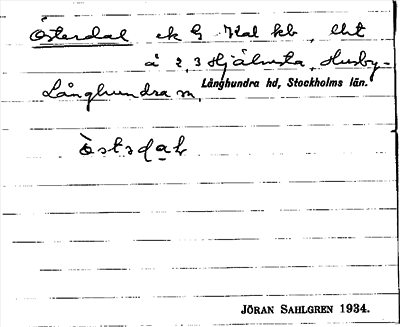 Österdal ek G Kal kb, lht
å 2, 3 Hjälmsta, Husby-
Långhundra sn, Långhundra hd, Stockholms län.
JÖRAN SAHLGREN 1934.